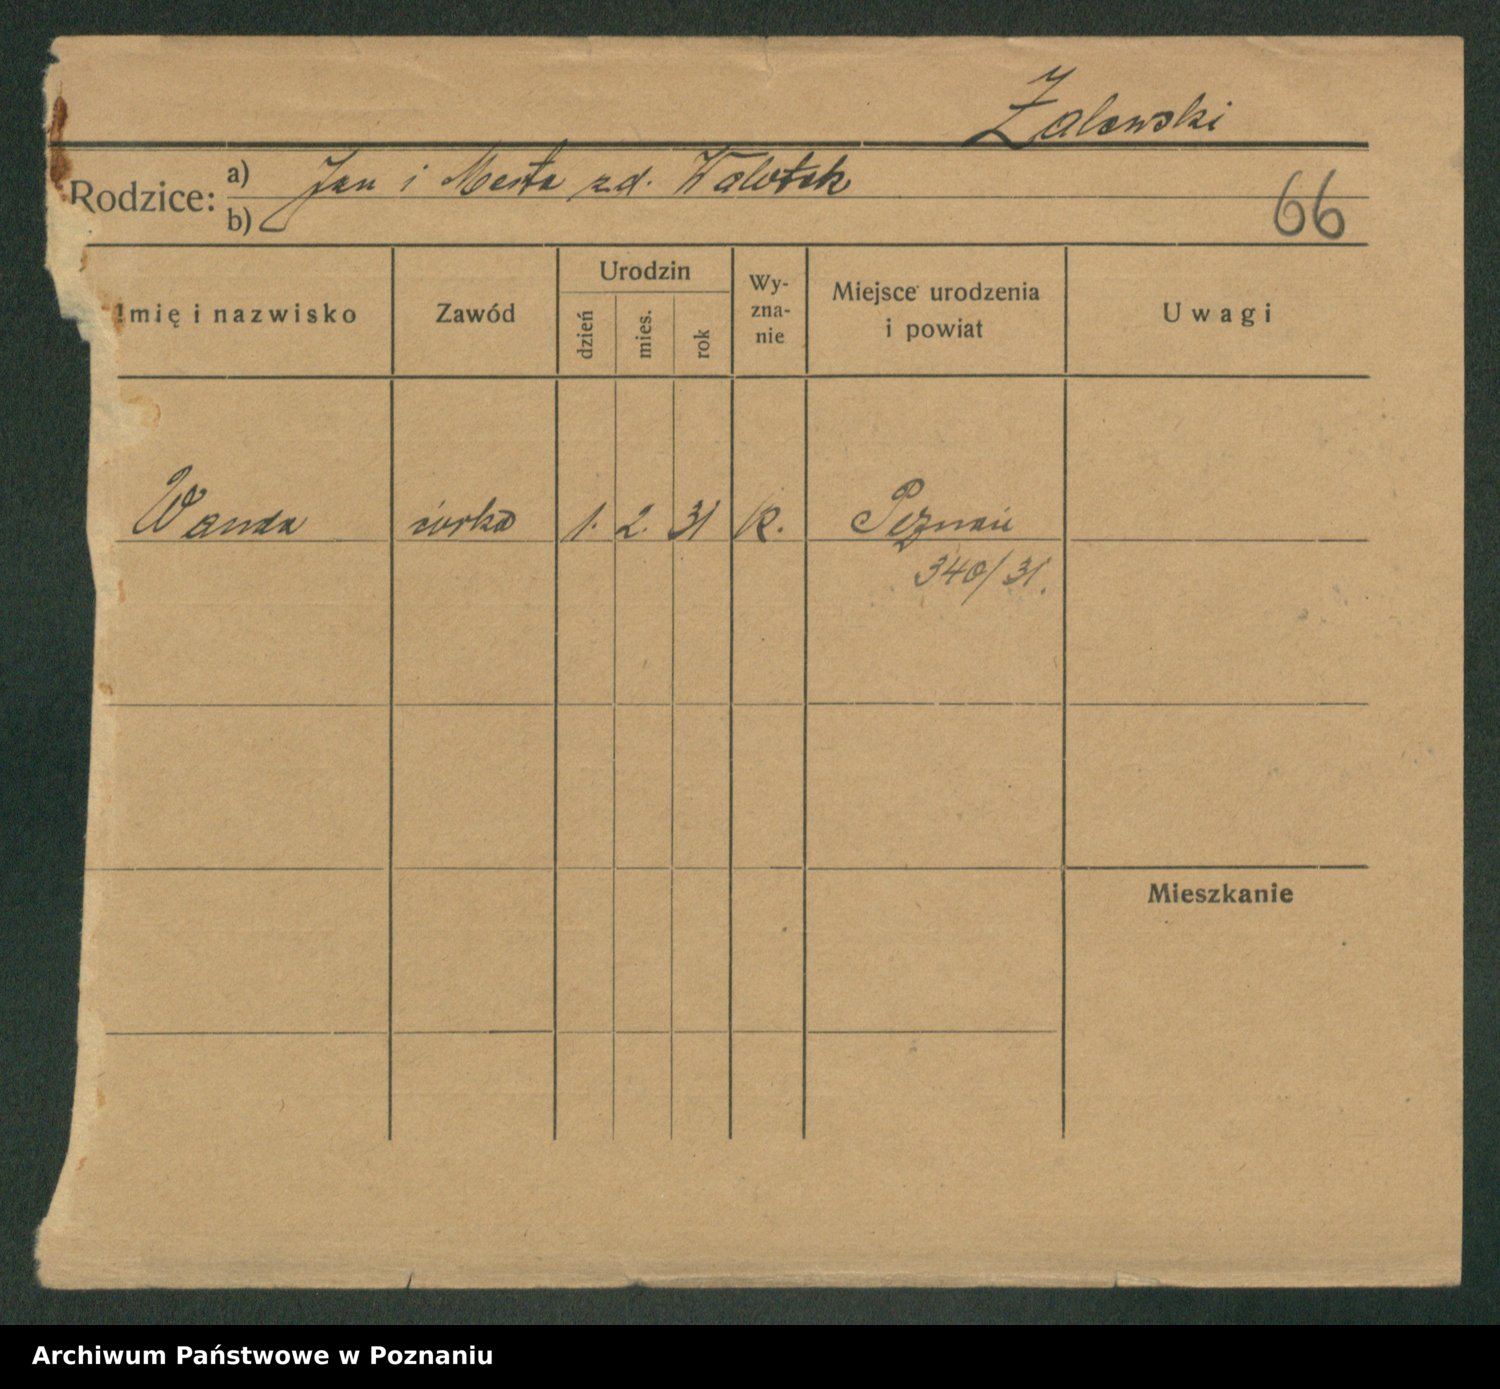 Zalewski
Rodzice: a) Jan i Marta zd. Walotek
b)
66
Imię i nazwisko
Zawód
Urodzin
dzień
mies.
rok
Wy-
zna-
nie
Miejsce urodzenia
i powiat
Uwagi
Wanda córka 1. 2. 31 K. Poznań
340/31.
Mieszkanie
Archiwum Państwowe w Poznaniu